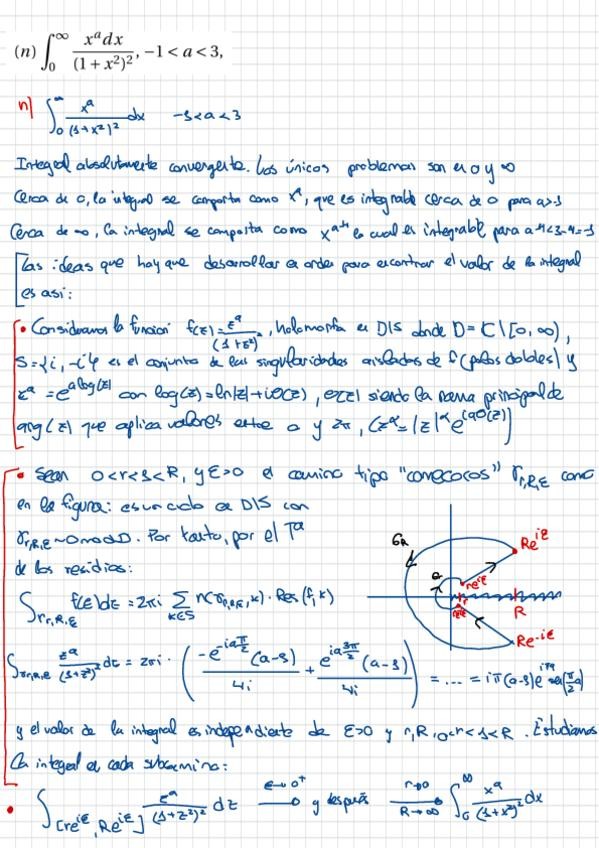 (n) ∫₀^∞ x^a dx / (1 + x²)², −1 < a < 3,
n) ∫₀^∞ x^a / (1+x²)² dx -1<a<3
Integral absolutamente convergente. Los únicos problemas son en 0 y ∞
Cerca de 0, la integral se comporta como x^a, que es integrable cerca de 0 para a>-1
Cerca de ∞, la integral se comporta como x^{a-4} lo cual es integrable para a-4<3-4=-1
Las ideas que hay que desarrollar en orden para encontrar el valor de la integral
es así:
• Consideramos la función f(z)=z^a/(1+z²)², holomorfa en D\S donde D=ℂ\[0,∞),
S={i,-i} es el conjunto de las singularidades aisladas de f (polos dobles) y
z^a = e^{a log(z)} con log(z)=ln|z|+iθ(z), θ(z) siendo la rama principal de
arg(z) que aplica valores entre 0 y 2π, (z^α=|z|^α e^{iαθ(z)})
• Sean 0<r<1<R, y ε>0 el camino tipo "comecocos" γ_{r,R,ε} como
en la figura: es un ciclo en D\S con
γ_{r,R,ε}~0 mod D. Por tanto, por el Tª
de los residuos:
∫_{γ_{r,R,ε}} f(z)dz = 2πi Σ_{k∈S} n(γ_{r,R,ε},k)·Res(f,k)
Re^{iε}
re^{iε}
R
Re^{-iε}
∫_{γ_{r,R,ε}} z^a/(1+z²)² dz = 2πi · ( -e^{iaπ/2}(a-1)/4i + e^{ia3π/2}(a-1)/4i ) = ... = iπ(a-1)e^{iπa} sen(π/2 a)
y el valor de la integral es independiente de ε>0 y r,R, 0<r<1<R. Estudiamos
la integral en cada subcamino:
• ∫_{[re^{iε},Re^{iε}]} z^a/(1+z²)² dz ε→0⁺ → y después r→0 R→∞ → ∫₀^∞ x^a/(1+x²)² dx